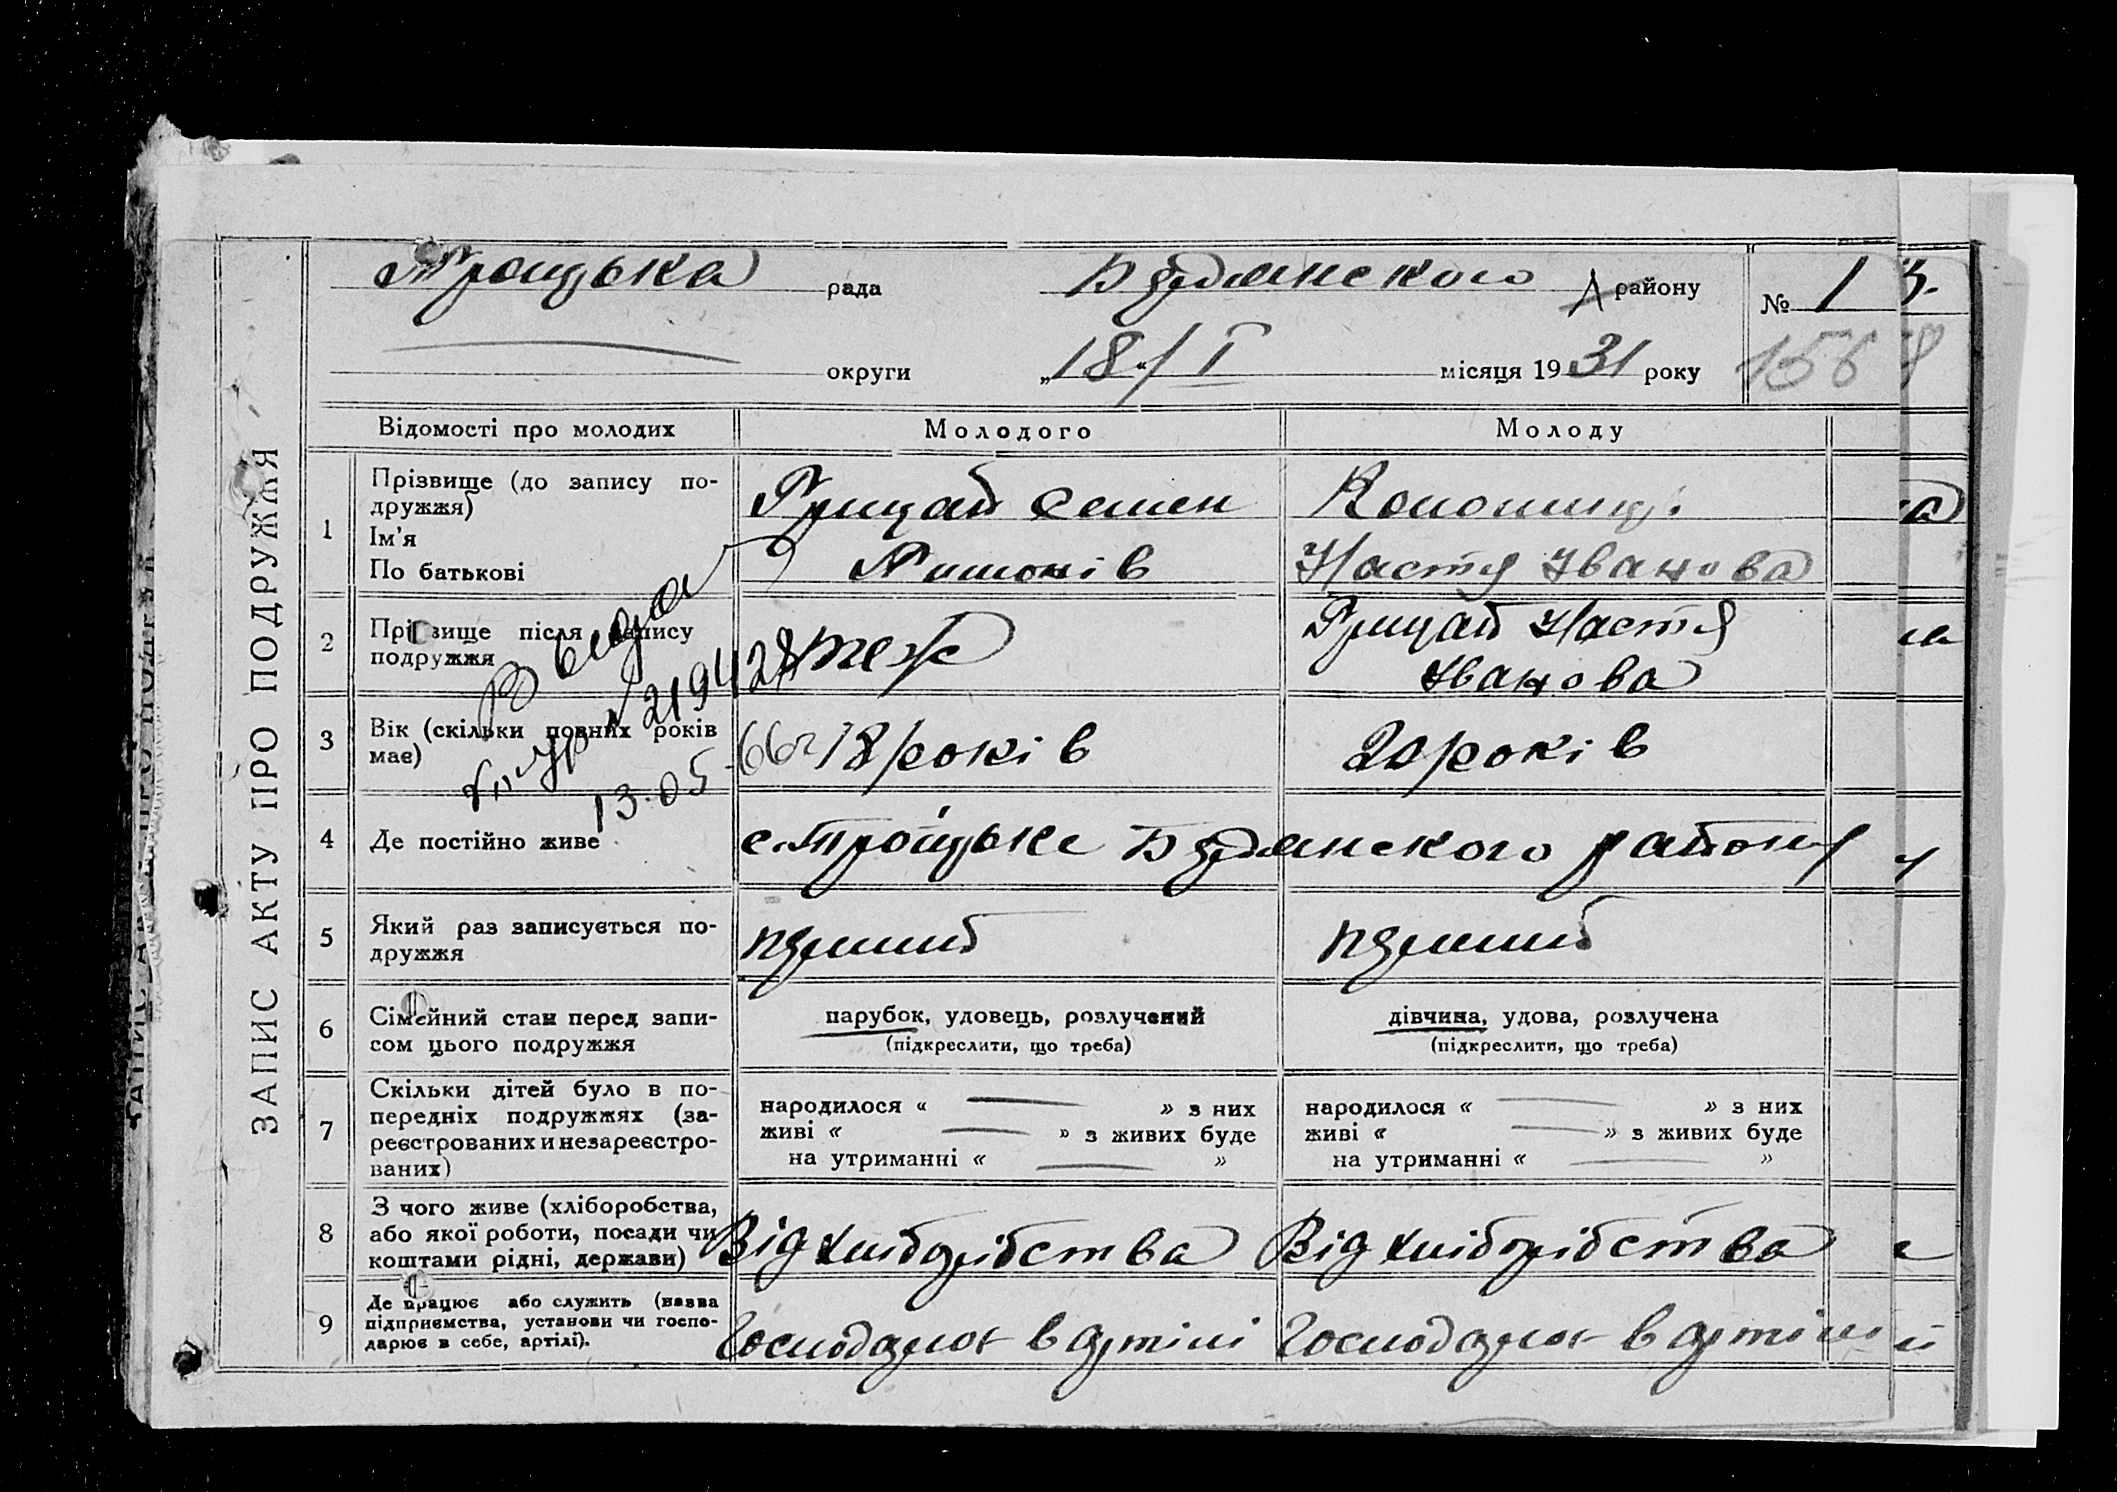 ЗАПИС АКТУ ПРО ПОДРУЖЖЯ
Троицька рада Бердянского району № 1
округи „18“/I місяця 1931 року 156
Відомості про молодих Молодого Молоду
1 Прізвище (до запису по-
дружжя)
Ім'я
По батькові
Грицай Семен
Коломиец
Настя Іванова
2 Прізвище після запису
подружжя
теж
Грицай Настя
Іванова
3 Вік (скільки повних років
має)
18 років
20 років
4 Де постійно живе
с. Троіцьке Бердянского району
5 Який раз записується по-
дружжя
перший
перший
6 Сімейний стан перед запи-
сом цього подружжя
парубок, удовець, розлучений
(підкреслити, що треба)
дівчина, удова, розлучена
(підкреслити, що треба)
7 Скільки дітей було в по-
передніх подружжях (за-
реєстрованих и незареєстро-
ваних)
народилося « » з них
живі « » з живих буде
на утриманні « »
народилося « » з них
живі « » з живих буде
на утриманні « »
8 З чого живе (хліборобства,
або якої роботи, посади чи
коштами рідні, держави)
Від хліборібства
Від хліборібства
9 Де працює або служить (назва
підприємства, установи чи госпо-
дарює в себе, артілі).
Господарює в артілі
Господарює в артілі
Выдал
219428
13.05-66г